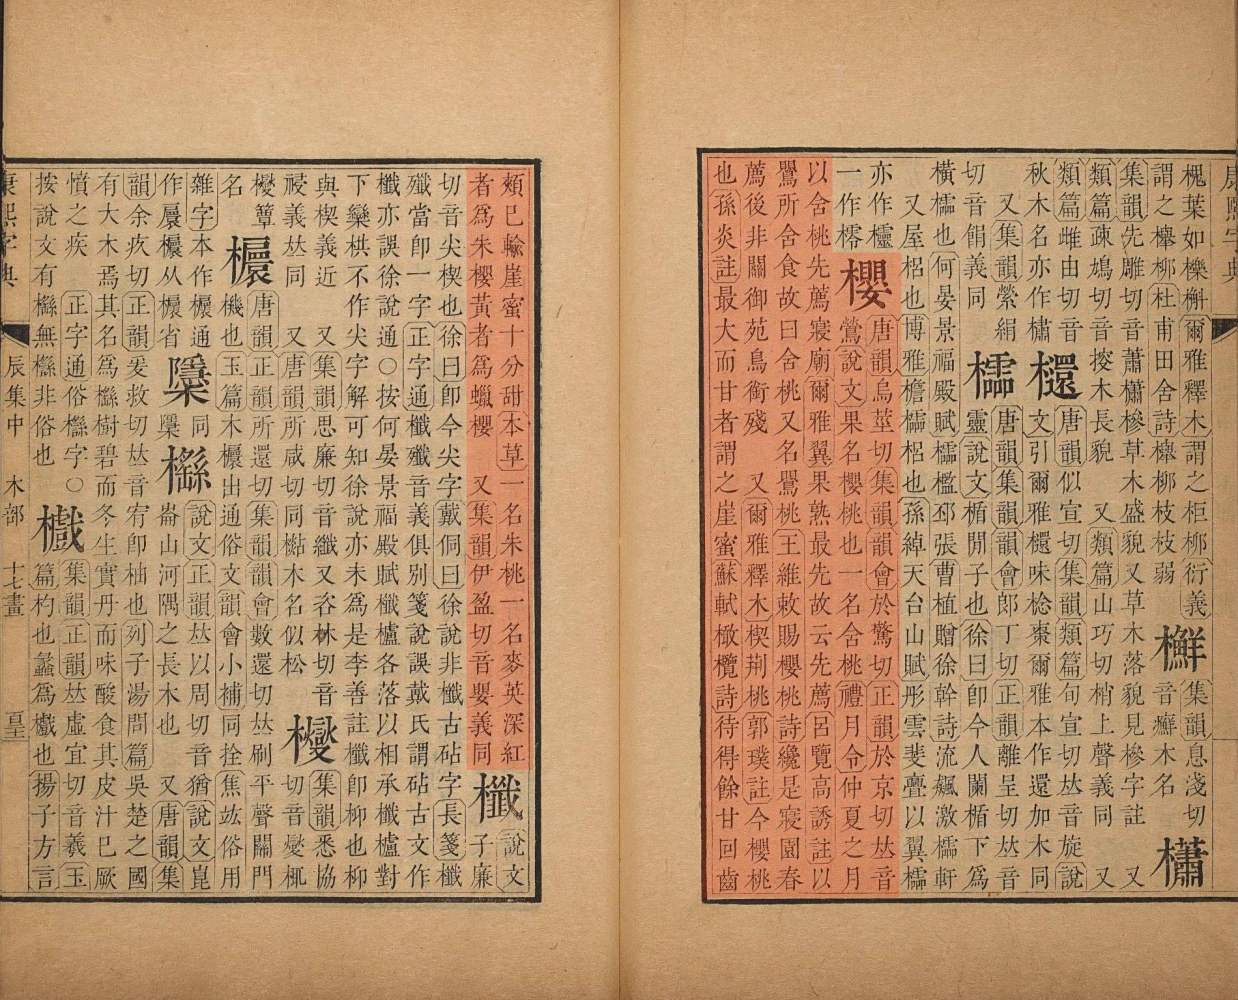 康熙字典
槐葉如櫟槲爾雅釋木謂之柜柳衍義
謂之櫸柳杜甫田舍詩櫸柳枝枝弱
集韻息淺切
音癬木名
櫹
集韻先雕切音蕭櫹槮草木盛貌又草木落貌見槮字註 又
類篇疎鳩切音捘木長貌 又類篇山巧切梢上聲義同 又
類篇雌由切音
秋木名亦作橚
唐韻似宣切集韻類篇旬宣切𠀤音旋說
文引爾雅味棯棗爾雅本作還加木同
又集韻縈絹
切音義同
櫺
唐韻集韻韻會郎丁切正韻離呈切𠀤音
靈說文楯閒子也徐曰卽今人闌楯下爲
橫櫺也何晏景福殿賦櫺檻邳張曹植贈徐幹詩流飆激櫺軒
又屋梠也博雅櫩櫺梠也孫綽天台山賦彤雲斐亹以翼櫺
亦作欞
一作
櫻
唐韻烏莖切集韻韻會於驚切正韻於京切𠀤音
鶯說文果名櫻桃也一名含桃禮月令仲夏之月
以含桃先薦寢廟爾雅翼果熟最先故云先薦呂覽高誘註以
鸎所含食故曰含桃又名鸎桃王維敕賜櫻桃詩纔是寢園春
薦後非關御苑鳥銜殘 又爾雅釋木楔荆桃郭璞註今櫻桃
也孫炎註最大而甘者謂之崖蜜蘇軾橄欖詩待得餘甘回齒
頰已輸崖蜜十分甜本草一名朱桃一名麥英深紅
者爲朱櫻黃者爲蠟櫻 又集韻伊盈切音嬰義同
櫼
說文
子廉
切音尖楔也徐曰卽今尖字戴侗曰徐說非櫼古砧字長箋櫼
殲當卽一字正字通櫼殲音義俱別箋說誤戴氏謂砧古文作
櫼亦誤徐說通○按何晏景福殿賦櫼櫨各落以相承櫼櫨對
下欒栱不作尖字解可知徐說亦未爲是李善註櫼卽柳也柳
與楔義近 又集韻思廉切音纖又叅林切音
祲義𠀤同 又唐韻所咸切同㰇木名似松
集韻悉協
切音燮
簟
名
唐韻正韻所還切集韻韻會數還切𠀤刷平聲關門
機也玉篇木出通俗文韻會小補同拴焦竑俗用
雜字本作通
作从省
同
櫾
說文正韻𠀤以周切音猶說文崑
崙山河隅之長木也 又唐韻集
韻余救切正韻爰救切𠀤音宥卽柚也列子湯問篇吳楚之國
有大木焉其名爲櫾樹碧而冬生實丹而味酸食其皮汁已厥
憤之疾 正字通俗櫾字○
按說文有櫾無櫾非俗也
㰕
集韻正韻𠀤虛宜切音羲玉
篇杓也蠡爲㰕也揚子方言
康熙字典 辰集中 木部 十七畫